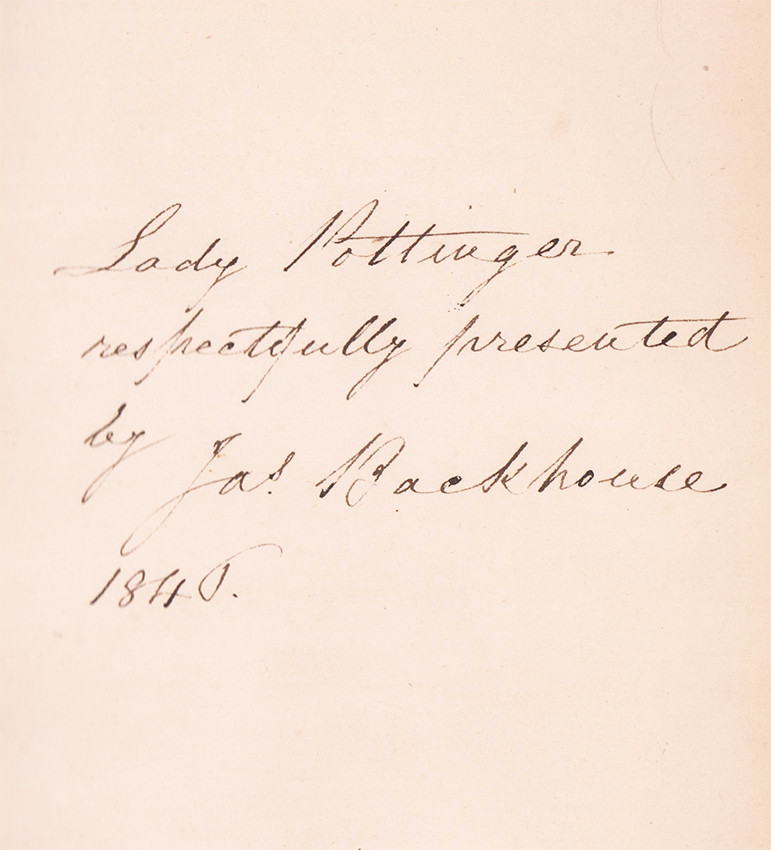 Lady Pottinger
respectfully presented
by Jas. Backhouse
1846.